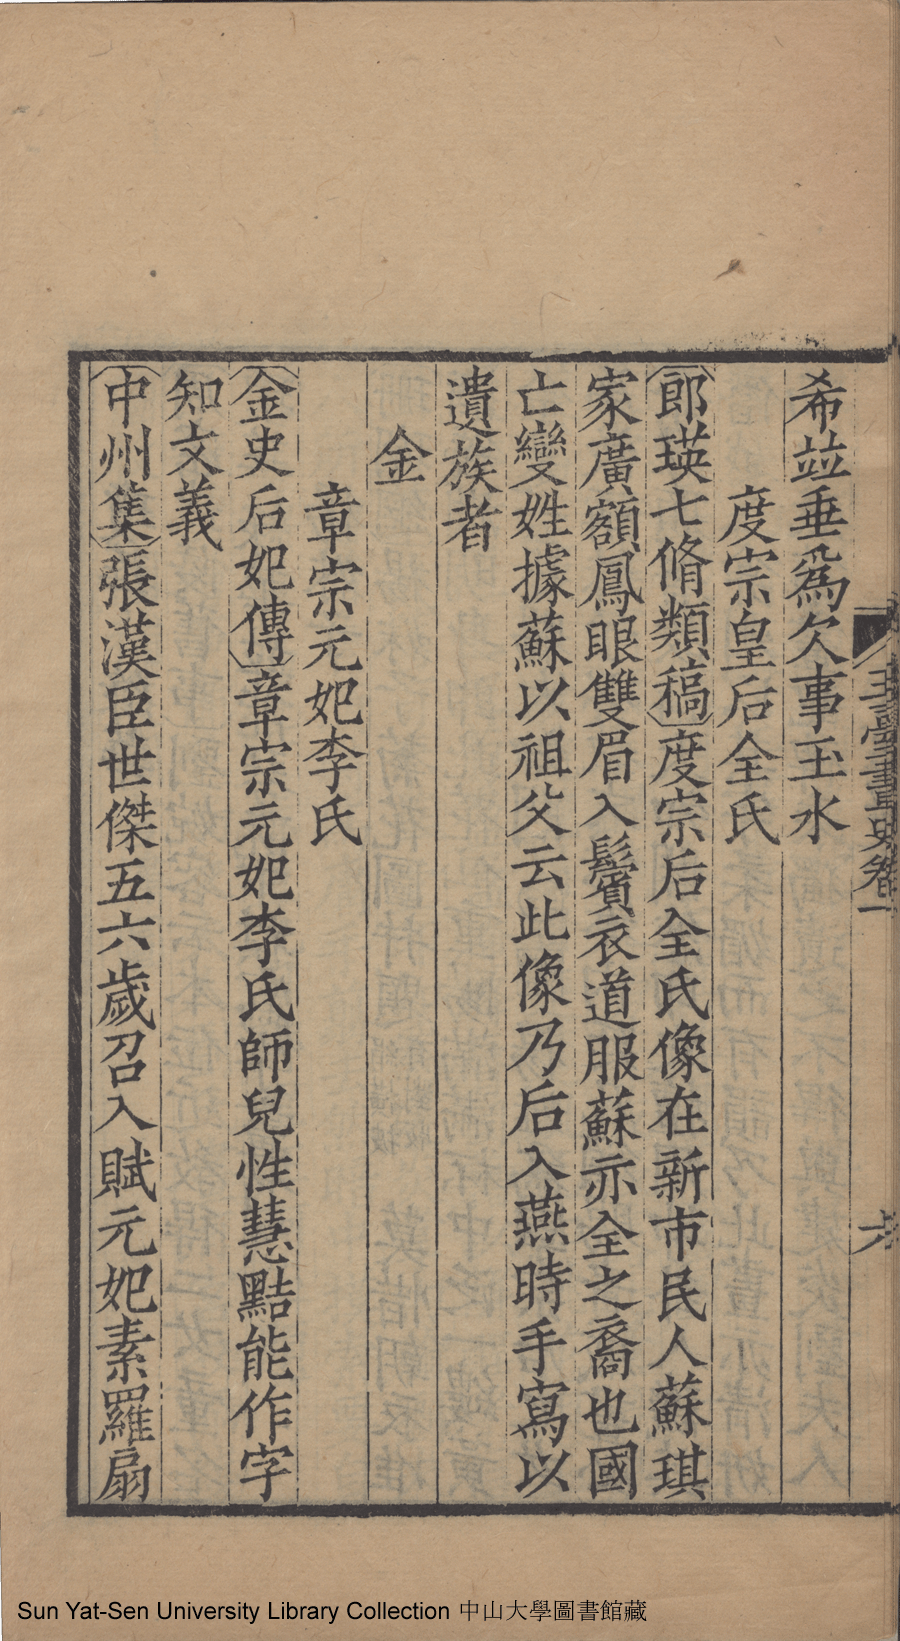 玉臺畫史卷一
六
希竝垂爲欠事玉水
度宗皇后全氏
郎瑛七脩類稿度宗后全氏像在新市民人蘇琪
家廣額鳳眼雙眉入鬢衣道服蘇亦全之裔也國
亡變姓據蘇以祖父云此像乃后入燕時手寫以
遺族者
金
章宗元妃李氏
金史后妃傳章宗元妃李氏師兒性慧黠能作字
知文義
中州集張漢臣世傑五六歲召入賦元妃素羅扇
Sun Yat-Sen University Library Collection 中山大學圖書館藏